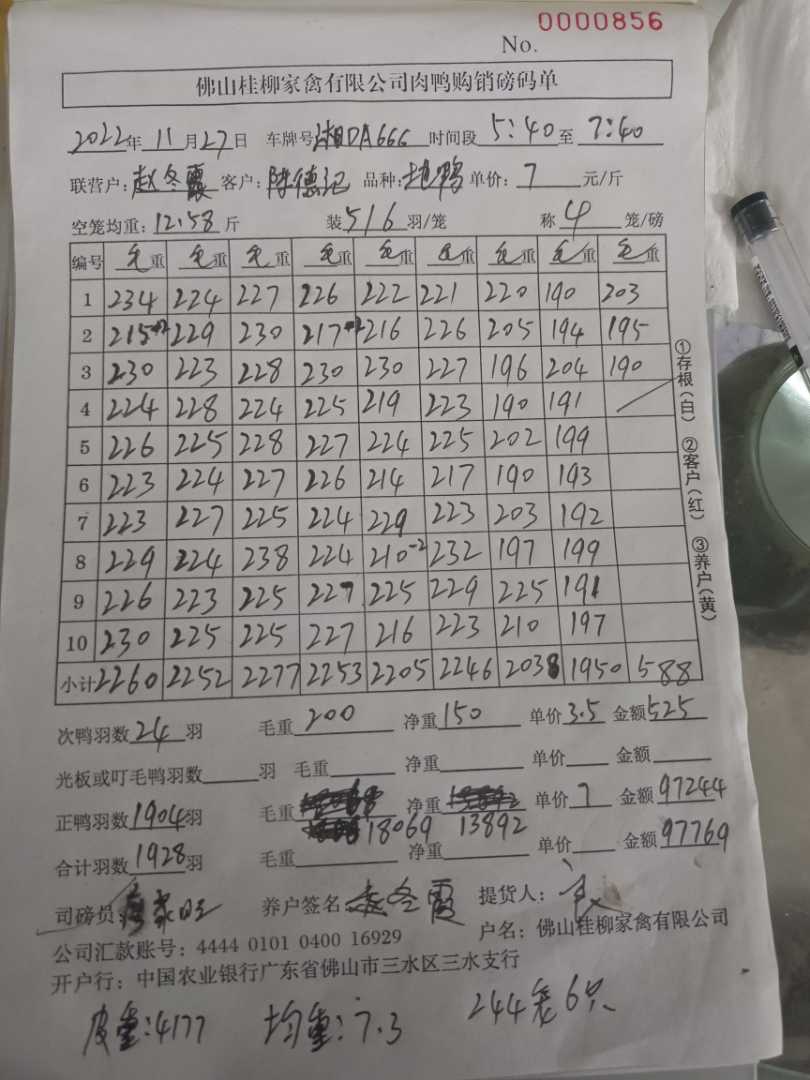 0000856
No.
佛山桂柳家禽有限公司肉鸭购销磅码单
2022年11月27日 车牌号湘DA666 时间段5:40至7:40
联营户:赵冬霞 客户:陈德记 品种:地鸭 单价:7元/斤
空笼均重:12.58斤 装5/6羽/笼 称4笼/磅
编号 毛重 毛重 毛重 毛重 毛重 毛重 毛重 毛重 毛重
1 234 224 227 226 222 221 220 190 203
2 215+2 229 230 217+2 216 226 205 194 195
3 230 223 228 230 230 227 196 204 190
4 224 228 224 225 219 223 190 191
5 226 225 228 227 224 225 202 199
6 223 224 227 226 214 217 190 193
7 223 227 225 224 229 223 203 192
8 229 224 238 224 210-2 232 197 199
9 226 223 225 227 225 229 225 191
10 230 225 225 227 216 223 210 197
小计 2260 2252 2277 2253 2205 2246 2038 1950 588
①存根(白) ②客户(红) ③养户(黄)
次鸭羽数24羽 毛重200 净重150 单价3.5 金额525
光板或叮毛鸭羽数 羽 毛重 净重 单价 金额
正鸭羽数1904羽 毛重 净重 单价7 金额97244
18069 13892
合计羽数1928羽 毛重 净重 单价 金额97769
司磅员: 养户签名:赵冬霞 提货人:
公司汇款账号:4444 0101 0400 16929 户名:佛山桂柳家禽有限公司
开户行:中国农业银行广东省佛山市三水区三水支行
皮重:4177 均重:7.3 244笼6只